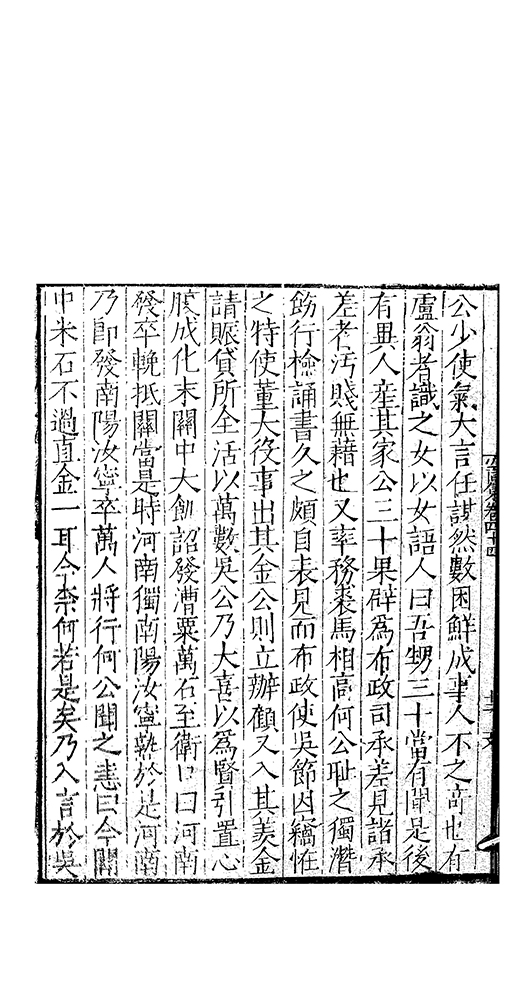 公少使氣大言任謀然數困鮮成事人不之竒也有
盧翁者識之女以女語人曰吾甥三十當有聞是後
有異人產其家公三十果辟為布政司承差見諸承
差者汚賤無藉也又率務裘馬相高何公耻之獨潛
飭行檢誦書久之頗自表見而布政使吳節因竊恠
之特使董大役事出其金公則立辦顧又入其羡金
請賑貸所全活以萬數吳公乃大喜以為賢引置心
腹成化末關中大飢詔發漕粟萬石至衛口曰河南
發卒輓抵關當是時河南獨南陽汝寧執於是河南
乃即發南陽汝寧卒萬人將行何公聞之恚曰今關
中米石不過直金一耳今柰何若是矣乃入言於吳
空同集卷四十四